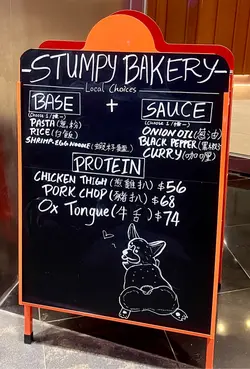 STUMPY BAKERY
Local Choices
BASE + SAUCE
(Choose 1/擇一) (Choose 1/擇一)
PASTA (意粉) ONION OIL (葱油)
RICE (白飯) BLACK PEPPER (黑椒)
SHRIMP-EGG NOODLE (蝦籽麵) CURRY (咖喱)
PROTEIN
CHICKEN THIGH (煎雞扒) $56
PORK CHOP (豬扒) $68
OX TONGUE (牛舌) $74